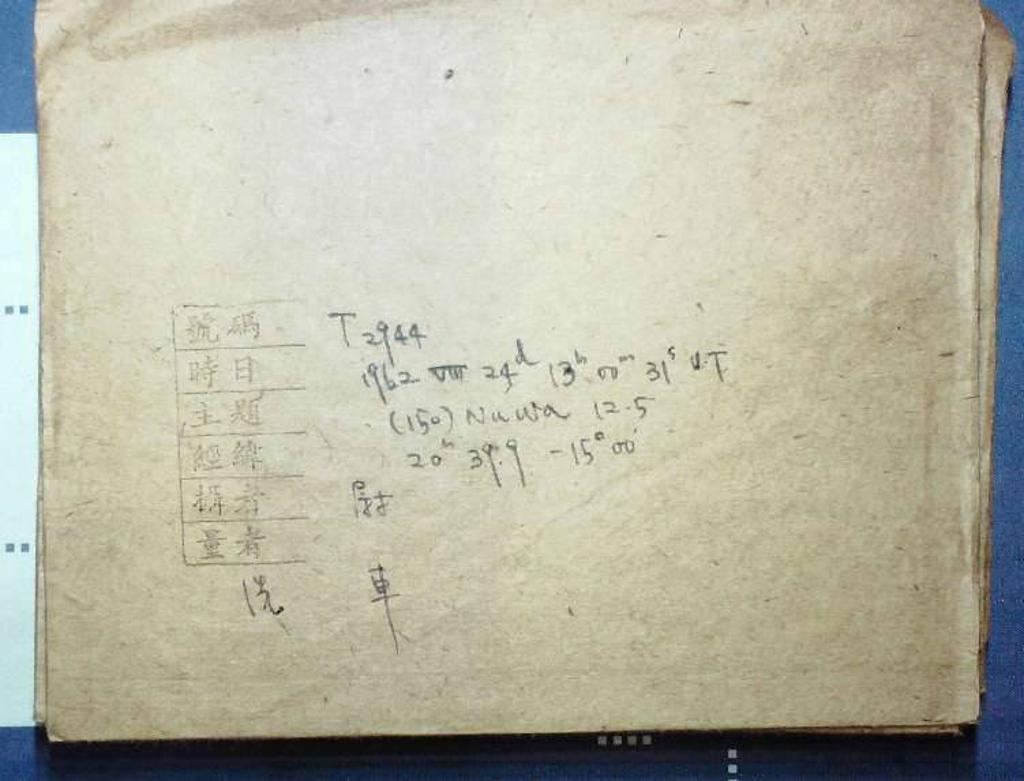 號碼 T2944
時日 1962 VIII 24d 13h 00m 31s U.T
主題 (150) Nuwa 12.5
經緯 20h 39.9 -15°00'
攝者
量者
洗 車